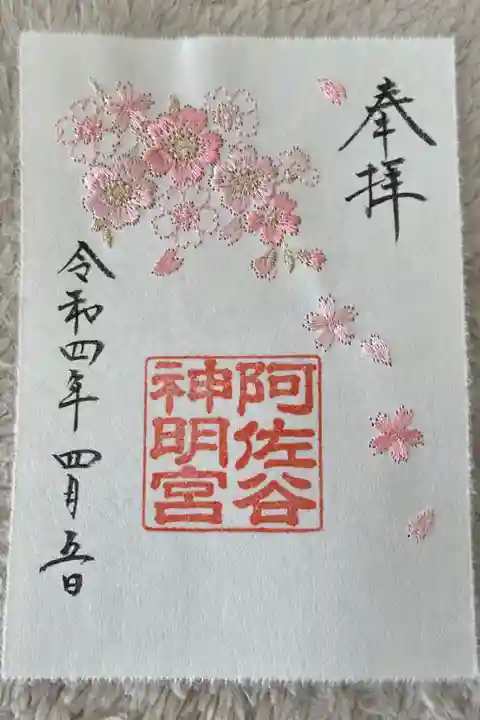 奉拝
阿佐谷
神明宮
令和四年四月五日